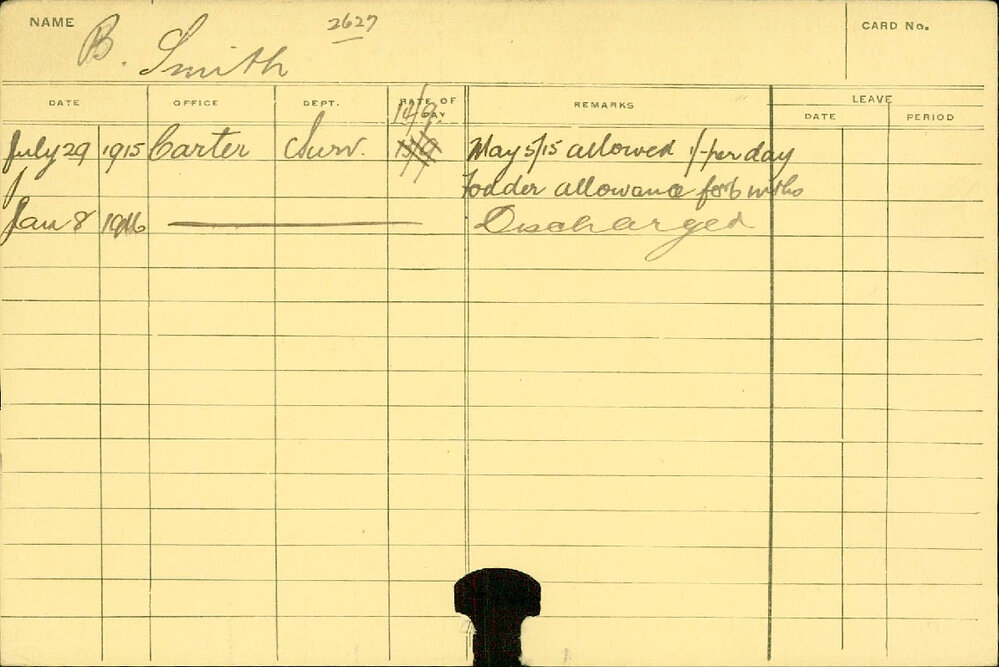 NAME B. Smith 2627 CARD No.
DATE OFFICE DEPT. RATE OF PAY REMARKS LEAVE
DATE PERIOD
14/9
July 29 1915 Carter Surv. May 5/15 allowed 1/- per day
fodder allowance for 6 mths
Jan 8 1916 Discharged